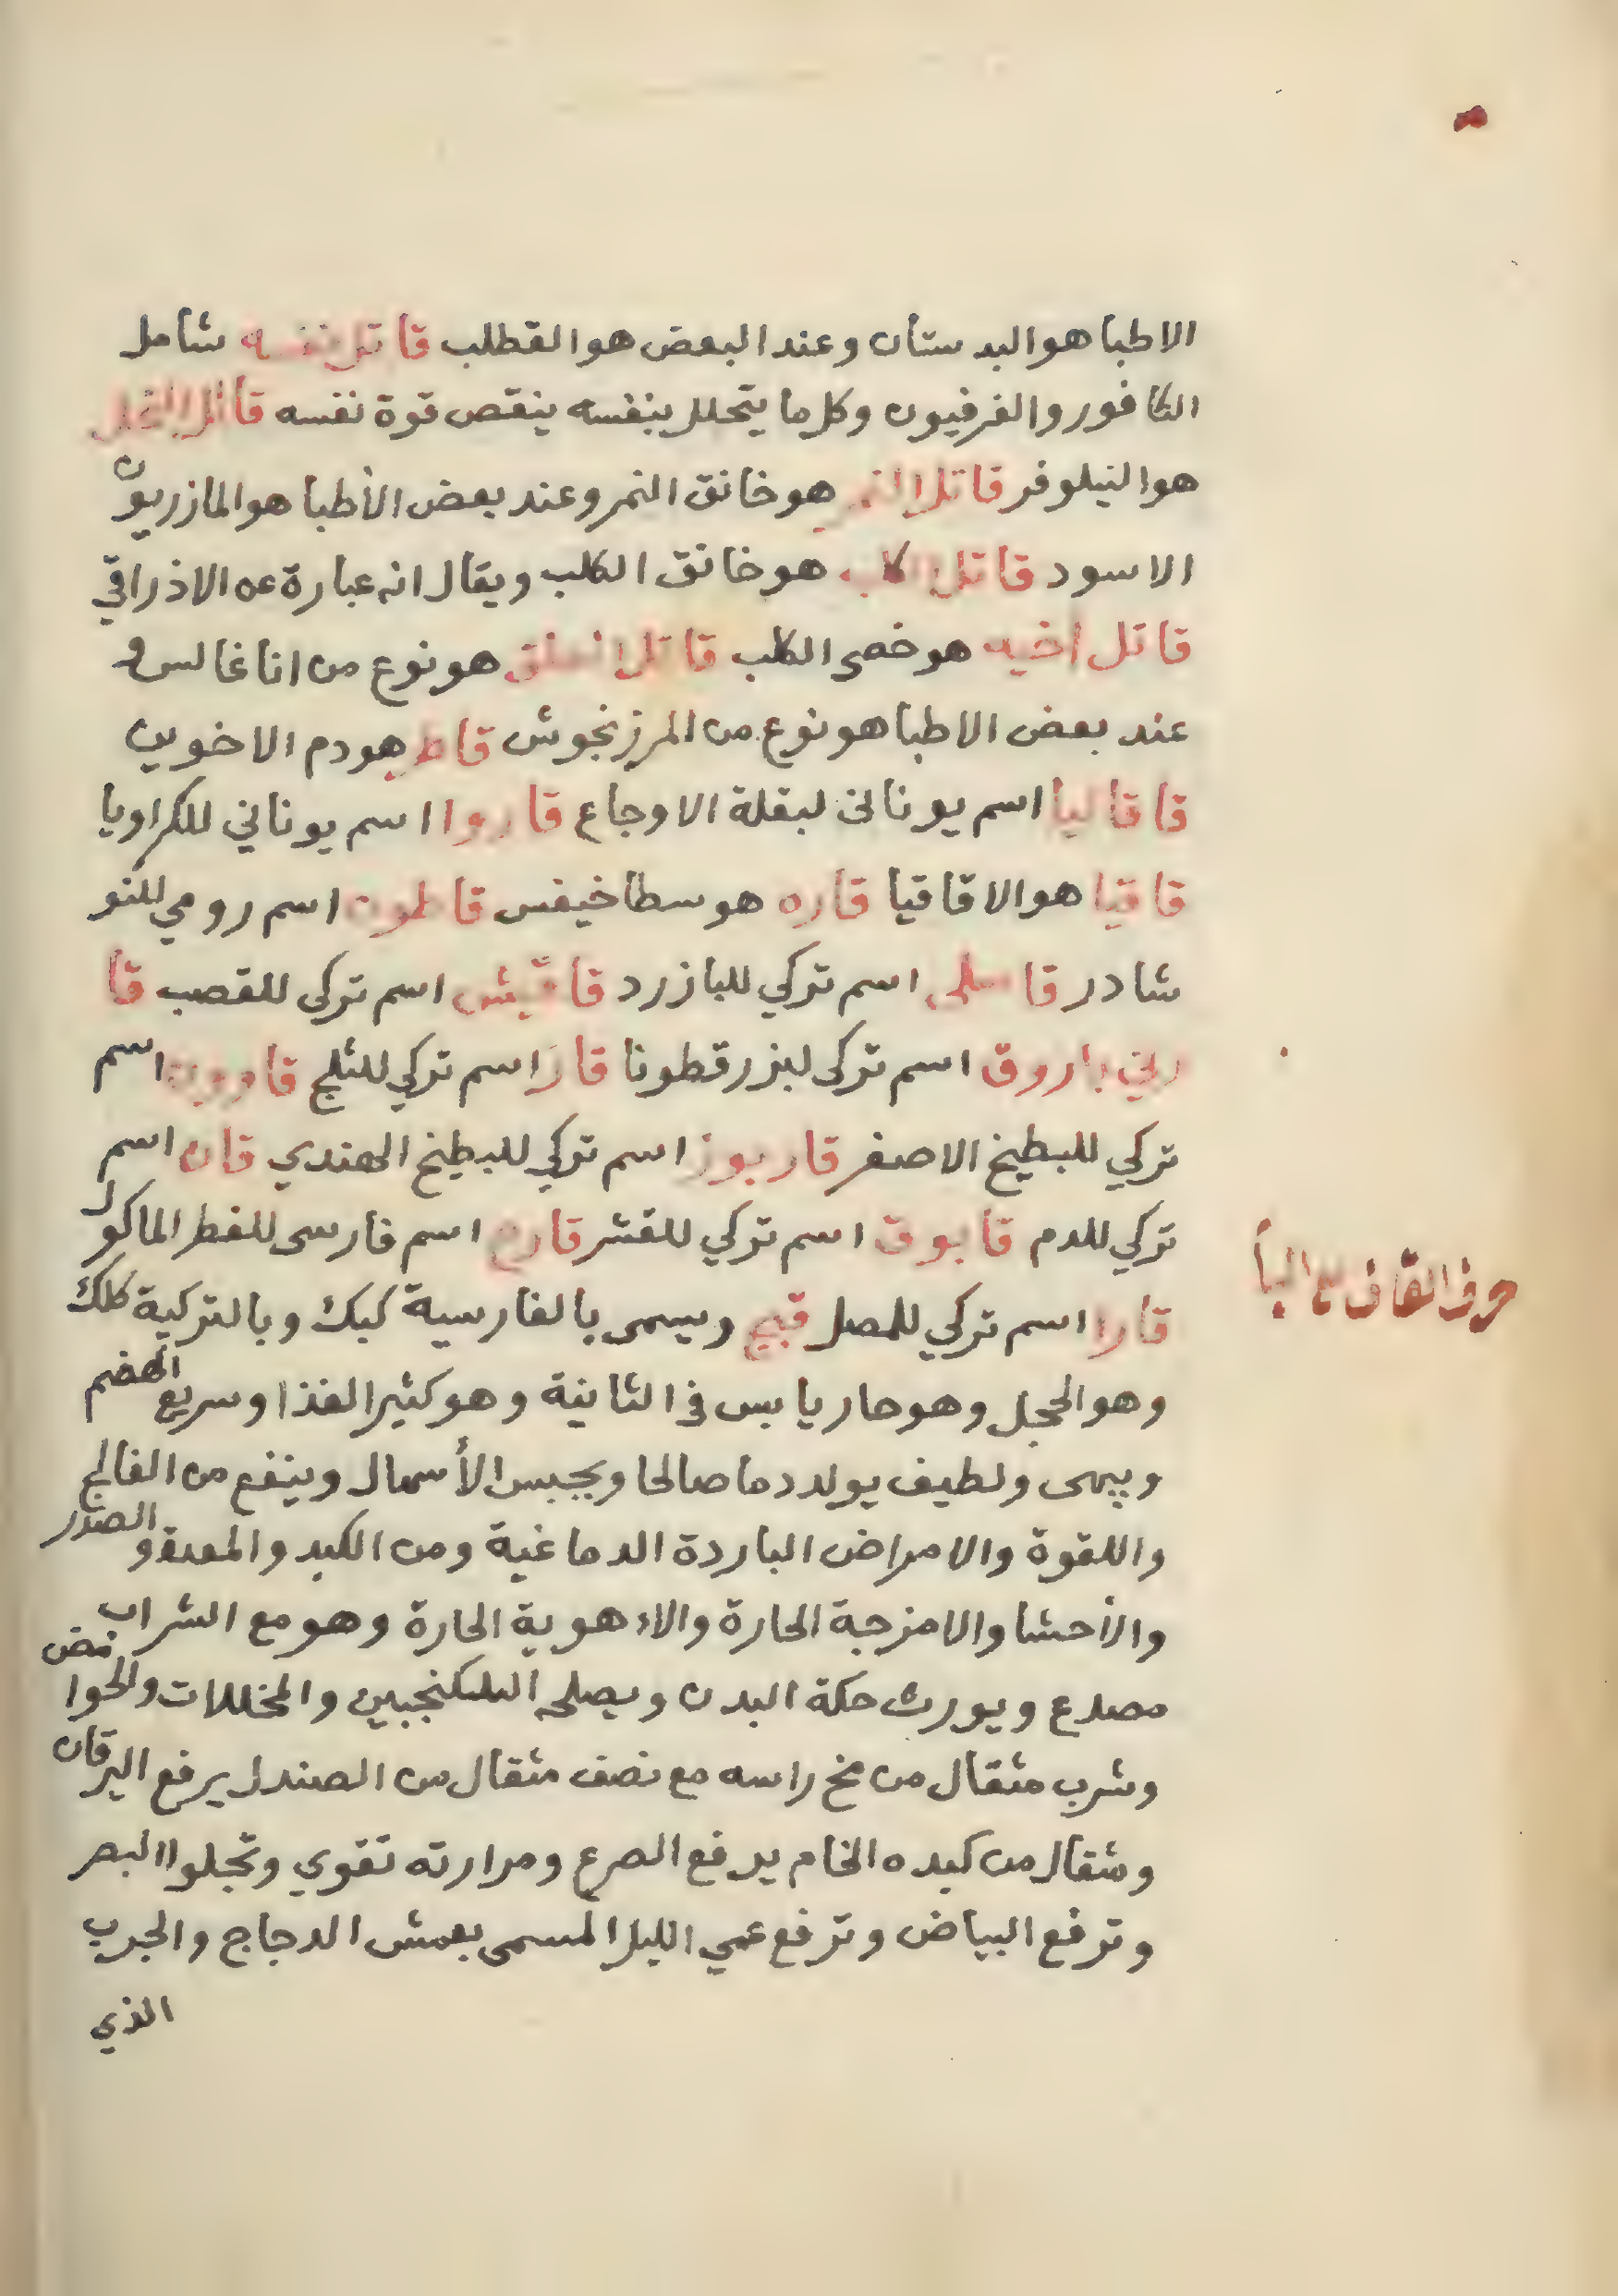 الاطبا هو البدستان وعند البعض هو القطلب قاتل نفسه شامل
الكافور والفرفيون وكل ما يتحلل بنفسه ينقص قوة نفسه قاتل النحل
هو النيلوفر قاتل النمر هو خانق النمر وعند بعض الأطبا هو المازريون
الاسود قاتل الكلب هو خانق الكلب ويقال انه عبارة عن الاذراقي
قاتل اخيه هو خصى الكلب قاتل العلق هو نوع من اناغالس و
عند بعض الاطبا هو نوع من المرزنجوش قاطر هو دم الاخوين
قاقاليا اسم يوناني لبقلة الاوجاع قاروا اسم يوناني للكراويا
قاقيا هو الاقاقيا قاره هو سطاخيفس قاطون اسم رومي للنو
شادر قاسلى اسم تركي للبازرد قاقيش اسم تركى للقصب قا
رني ياروق اسم تركى لبزرقطونا قار اسم تركي للثلج قاوون اسم
تركي للبطيخ الاصفر قاربوز اسم تركي للبطيخ الهندي قان اسم
تركي للدم قابوق اسم تركي للقشر قارج اسم فارسى للفطر الماكول
قارا اسم تركي للمصل قبج ويسمى بالفارسية كبك وبالتركية ككلك
حرف القاف مع البأ
وهو الحجل وهو حار يابس في الثانية وهو كثير الغذا وسريع الهضم
ويبهى ولطيف يولد دما صالحا ويحبس الأسهال وينفع من الفالج
واللقوة والامراض الباردة الدماغية ومن الكبد والمعدة والصدر
والأحشا والامزجة الحارة والاهوية الحارة وهو مع الشراب
مصدع ويورث حكة البدن ويصلحه السكنجبين والمخللات والحوامض
وشرب مثقال من مخ راسه مع نصف مثقال من الصندل يرفع اليرقان
ومثقال من كبده الخام يدفع الصرع ومرارته تقوي وتجلوا البصر
وترفع البياض وترفع عمي الليل المسمى بعمش الدجاج والجرب
الذي